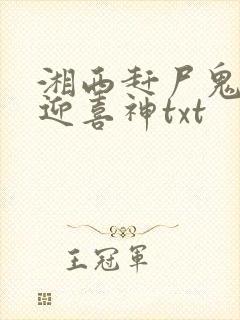 湘西赶尸鬼
迎喜神txt
王冠軍